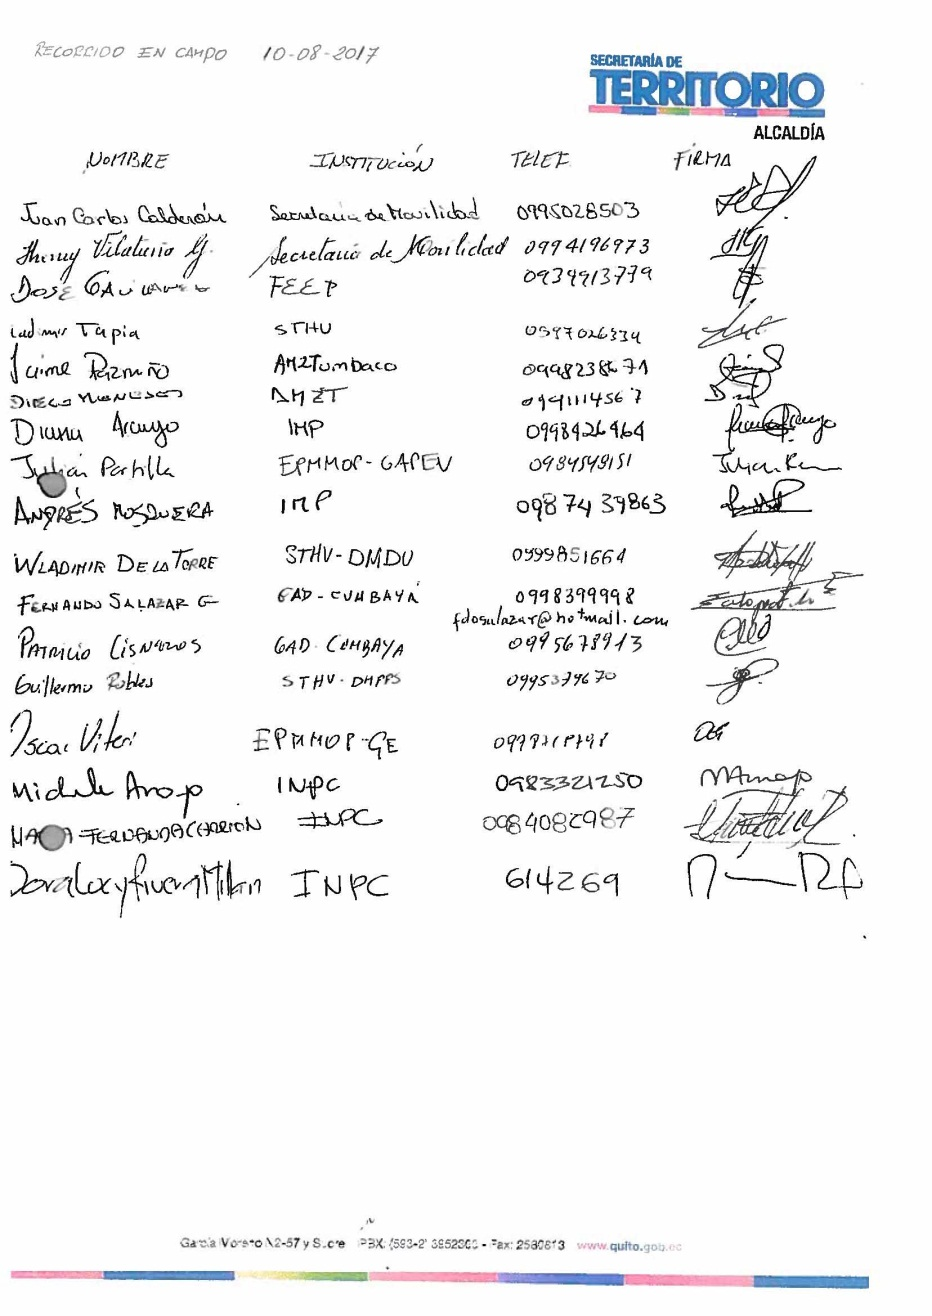 RECORRIDO EN CAMPO 10-08-2017
SECRETARÍA DE
TERRITORIO
ALCALDÍA
NOMBRE INSTITUCIÓN TELEF FIRMA
Juan Carlos Calderón Secretaria de Movilidad 0995028503
Jhenny Vilatuña G. Secretaria de Movilidad 0994196973
José FEEP 0939913779
Tapia STHU
Jaime Pazmiño AMZTumbaco
DIEGO AMZT 0991114567
Diana Araujo IMP 0998426464
Julián Portilla EPMMOP-GAPEV 0984549151
ANDRÉS MOSQUERA IMP 0987439863
WLADIMIR DE LA TORRE STHV-DMDU 0999851664
FERNANDO SALAZAR G GAD-CUMBAYÁ 0998399998
fdosalazar@hotmail.com
PATRICIO CISNEROS GAD CUMBAYA 0995678913
Guillermo Robles STHV-DMPPS 0995379670
Oscar Viteri EPMMOP-GE
Michele INPC 0983321250
FERNANDA CARRION INPC 0984082987
INPC 614269
García Moreno N2-57 y Sucre PBX: (593-2) 3952300 - Fax: 2580813 www.quito.gob.ec